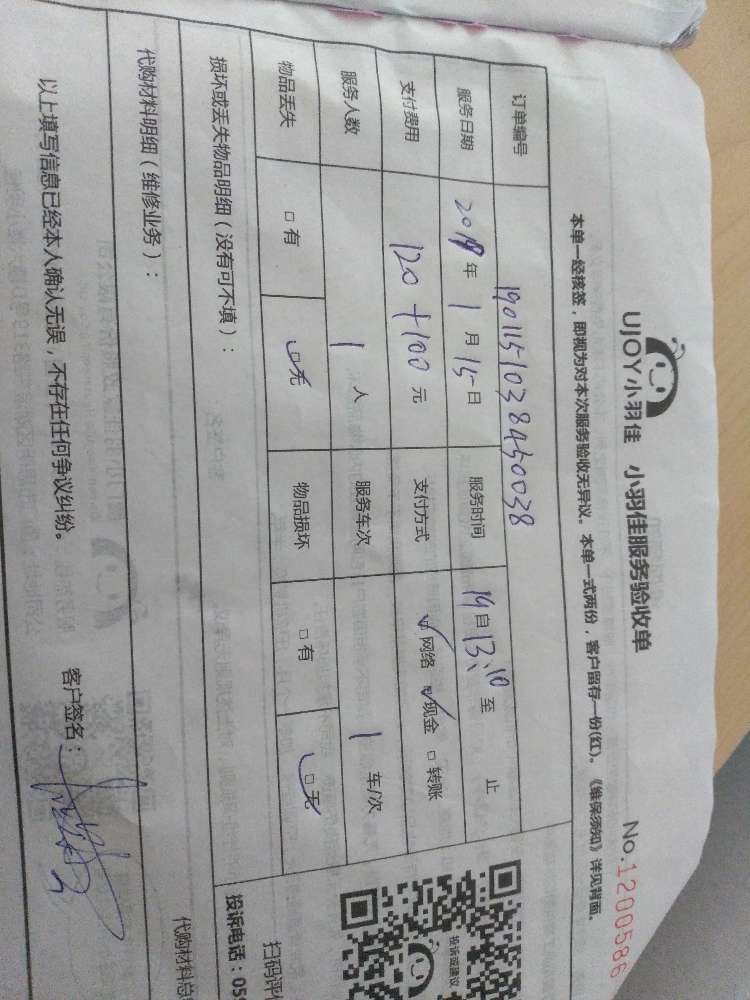 UJOY小羽佳 小羽佳服务验收单 No.1200586
本单一经核签，即视为对本次服务验收无异议。本单一式两份，客户留存一份(红)。《维保须知》详见背面。
订单编号 1901151038450038
服务日期 2019年1月15日 服务时间 自13:10至 止
支付费用 120+100元 支付方式 网络 现金 □转账
服务人数 1人 服务车次 1车/次
物品丢失 □有 □无 物品损坏 □有 □无
投诉或建议
扫码评
损坏或丢失物品明细（没有可不填）：
投诉电话：05
代购材料明细（维修业务）：
代购材料总
以上填写信息已经本人确认无误，不存在任何争议纠纷。 客户签名：